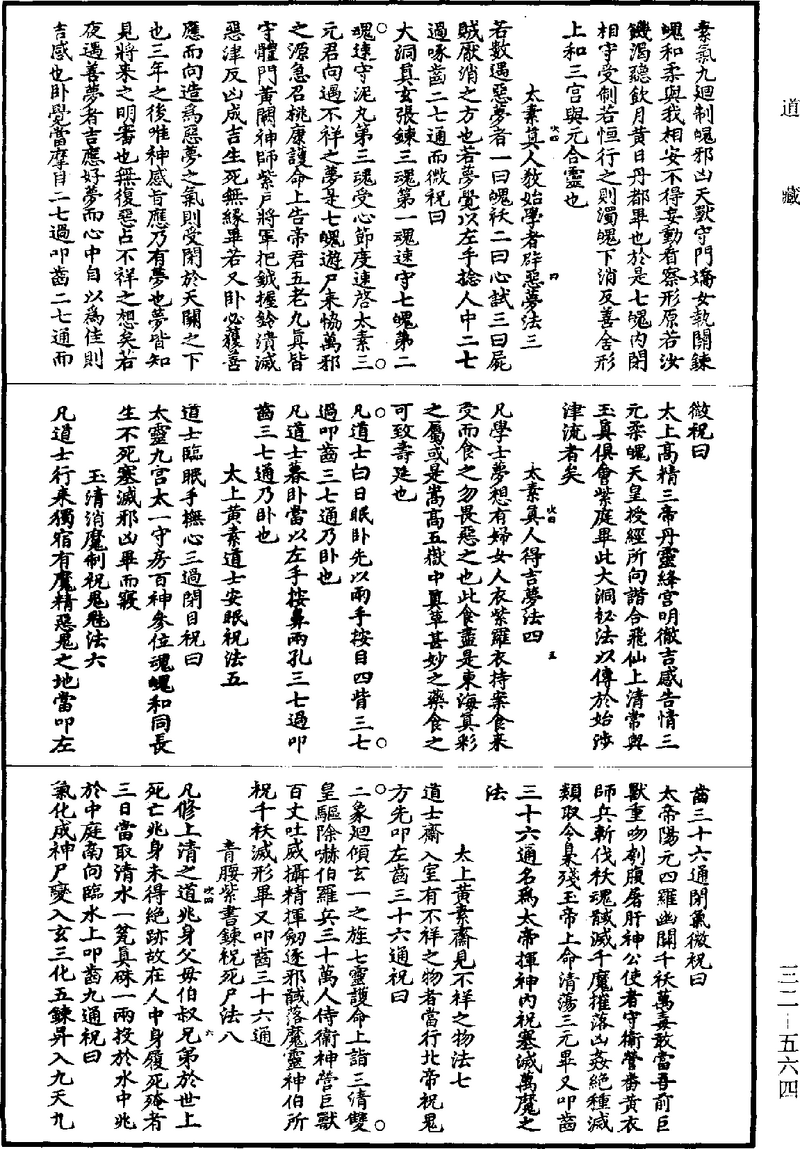 道藏
三二－五六四
素氣九迴制魄邪凶天獸守門嬌女執關鍊
魄和柔與我相安不得妄動看察形原若汝
饑渴聽飲月黄日丹都畢也於是七魄内閉
相守受制若恒行之則濁魄下消反善舍形
上和三宫與元合靈也
太素真人教始學者辟惡夢法三
若數遇惡夢者一曰魄袄二曰心試三曰屍
賊厭消之方也若夢覺以左手捻人中二七
過啄齒二七通而微祝曰
大洞真玄張鍊三魂第一魂速守七魄第二
魂速守泥丸第三魂受心節度速啓太素三
元君向遇不祥之夢是七魄遊尸來協萬邪
之源急召桃康護命上告帝君五老九真皆
守體門黄闕神師紫戶將軍把鉞握鈴潰滅
惡津反凶成吉生死無緣畢若又卧必獲善
應而向造爲惡夢之氣則受閉於天關之下
也三年之後唯神感旨應乃有夢也夢皆知
見將來之明審也無復惡占不祥之想矣若
夜遇善夢者吉應好夢而心中自以爲佳則
吉感也卧覺當摩目二七過叩齒二七通而
微祝曰
太上高精三帝丹靈絳宫明徹吉感告情三
元柔魄天皇授經所向諧合飛仙上清常與
玉真俱會紫庭畢此大洞祕法以傳於始涉
津流者矣
太素真人得吉夢法四
凡學士夢想有婦女人衣紫羅衣持案食來
受而食之勿畏惡之也此食盡是東海真彩
之屬或是嵩高五嶽中真草甚妙之藥食之
可致壽延也
凡道士白日眠卧先以兩手按目四眥三七
過叩齒三七通乃卧也
凡道士暮卧當以左手按鼻兩孔三七過叩
齒三七通乃卧也
太上黄素道士安眠祝法五
道士臨眠手撫心三過閉目祝曰
太靈九宫太一守房百神參位魂魄和同長
生不死塞滅邪凶畢而寢
玉清消魔制祝鬼魅法六
凡道士行來獨宿有魔精惡鬼之地當叩左
齒三十六通閉氣微祝曰
太帝陽元四羅幽關千袄萬毒敢當吾前巨
獸重吻刳腹屠肝神公使者守衛營番黄衣
師兵斬伐袄魂馘滅千魔摧落凶姦絕種滅
類取令梟殘玉帝上命清蕩三元畢又叩齒
三十六通名爲太帝揮神内祝塞滅萬魔之
法
太上黄素齋見不祥之物法七
道士齋入室有不祥之物者當行北帝祝鬼
方先叩左齒三十六通祝曰
二象迴傾玄一之旌七靈護命上詣三清雙
皇驅除嚇伯羅兵三十萬人侍衛神營巨獸
百丈吐威攝精揮劒逐邪馘落魔靈神伯所
祝千袄滅形畢又叩齒三十六通
青腰紫書鍊祝死尸法八
凡修上清之道兆身父母伯叔兄弟於世上
死亡兆身未得絕跡故在人中身履死殗者
三日當取清水一笎真硃一兩投於水中兆
於中庭南向臨水上叩齒九通祝曰
氣化成神尸變入玄三化五鍊昇入九天九